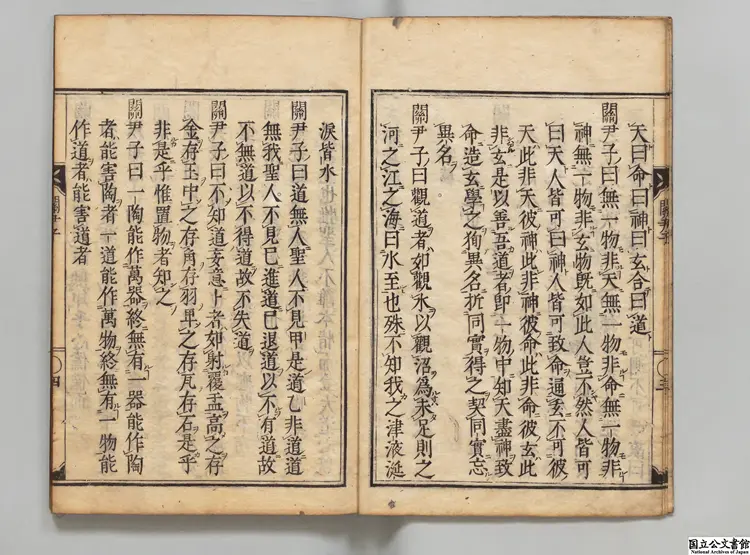 天曰命曰神曰玄合曰道
關尹子曰無一物非天無一物非命無一物非
神無一物非玄物既如此人豈不然人皆可
曰天人皆可曰神人皆可致命通玄不可彼
天此非天彼神此非神彼命此非命彼玄此
非玄是以善吾道者即一物中知天盡神致
命造玄學之徇異名析同實得之契同實忘
異名
關尹子曰觀道者如觀水以觀沼爲未足則之
河之江之海曰水至也殊不知我之津液涎
涙皆水
關尹子曰道無人聖人不見甲是道乙非道道
無我聖人不見己進道己退道以不有道故
不無道以不得道故不失道
關尹子曰不知道妄意卜者如射覆盂高之存
金存玉中之存角存羽卑之存瓦存石是乎
非是乎惟置物者知之
關尹子曰一陶能作萬器終無有一器能作陶
者能害陶者一道能作萬物終無有一物能
作道者能害道者
關尹子
四
国立公文書館
National Archives of Japan